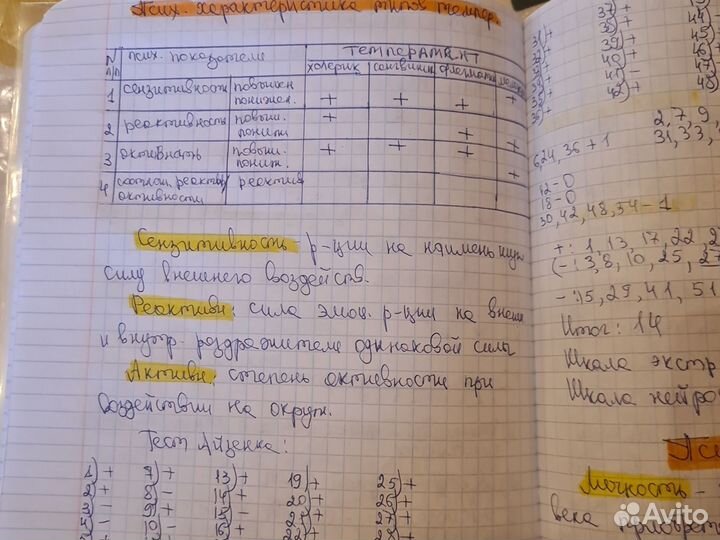 Псих. характеристика типов темпер.
N п/п псих. показатели темперамент
холерик сангвиник флегматик
1 сензитивность повышен + 
понижен. + + +
2 реактивность повыш. +
пониж. + +
3 активность повыш. + + +
пониж. +
4 соотнош. реактив/ реактив
активности
Сензитивность - р-ции на наименьшую
силу внешнего воздейств.
Реактивн: сила эмоц. р-ции на внешн
и внутр. раздражители одинаковой силы
Активн. степень активности при
воздействии на окруж.
Тест Айзенка:
1) + 7) + 13) + 19) + 25) +
2) + 8) - 14) + 20) + 26) +
3) + 9) + 15) - 21) + 27) +
4) - 10) - 16) + 22) + 28) +
37) +
31) + 38) +
39) +
40) +
42) +
36) +
2, 7, 9,
6, 24, 36 + 1 31, 33,
12 - 0
18 - 0
30, 42, 48, 54 - 1
+: 1, 13, 17, 22, 2
(-: 3, 8, 10, 25, 27
- : 15, 29, 41, 51
Итог: 14
Шкала экстр
Шкала нейро
Пси
Личность -
века приобрет
Avito